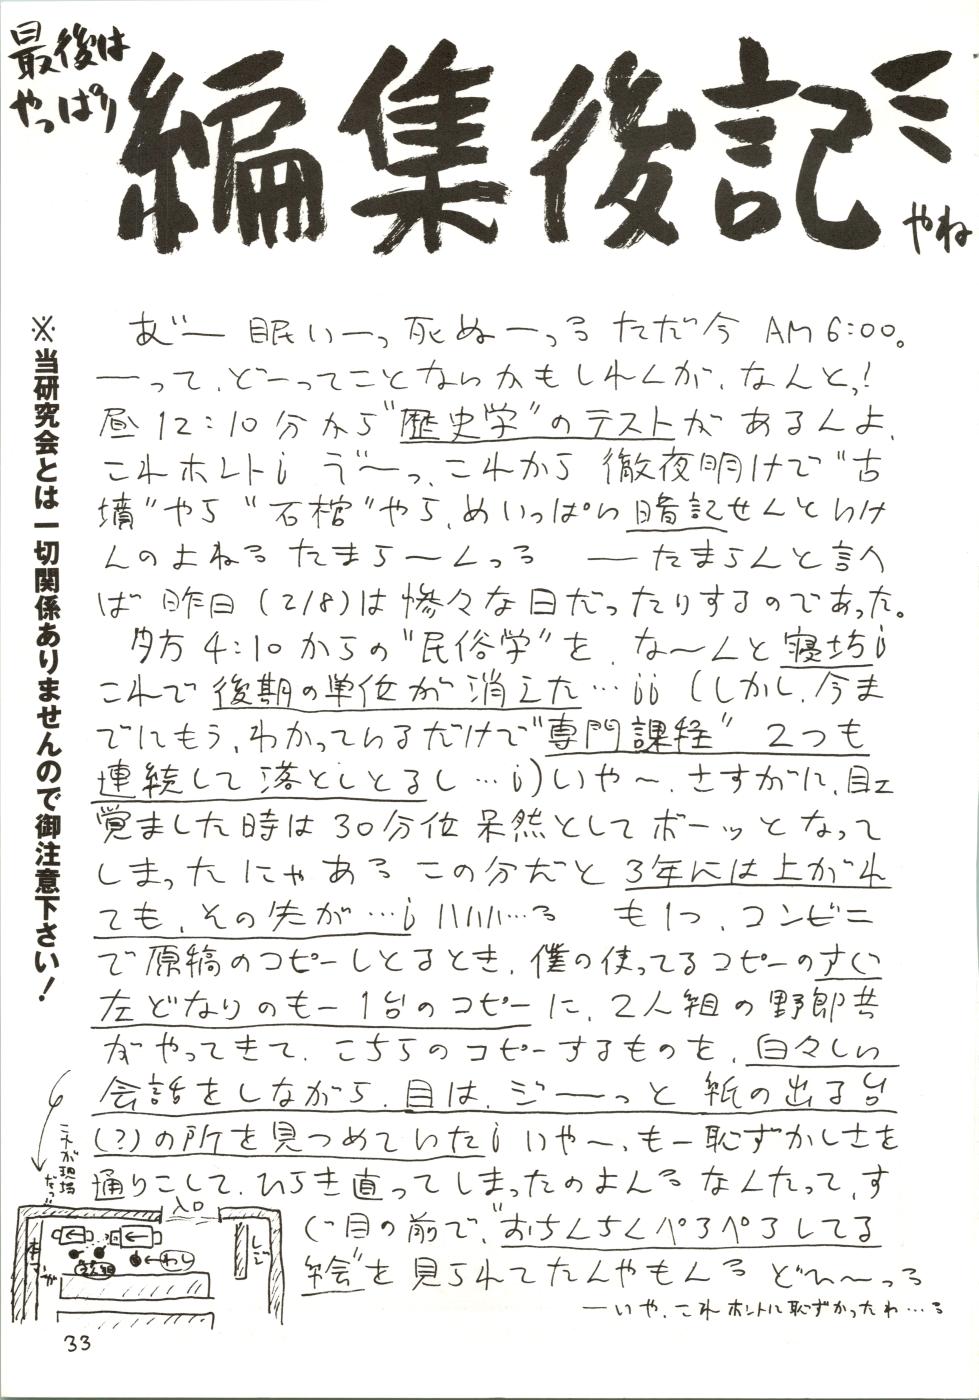 最後は
やっぱり
編集後記ミ
やね
※当研究会とは一切関係ありませんので御注意下さい！
あ゛ー 眠いーっ死ぬーっる ただ今 AM6:00。
ーって、どーってことないかもしれんが、なんとっ!
昼12:10分から"歴史学"のテストが あるんよ、
これホントi う゛〜っ、これから 徹夜明けで"古
墳"やら"石棺"やら、めいっぱい暗記せんといけ
んのよねる たまら〜んっる ーたまらんと言へ
ば 昨日(2/8)は惨々な日だったりするのであった。
夕方4:10からの"民俗学"を、な〜んと寝坊i
これで後期の単位が消えた…ii (しかし、今ま
でにもう、わかっているだけで"専門課程" 2つも
連続して落としとるし…i)いや〜、さすがに、目エ
覚ました時は30分位呆然としてボーッとなって
しまったにゃある この分だと 3年には上がれ
ても、その先が…i \\\\\\…る も1つ、コンビニ
で原稿のコピーしとるとき、僕の使ってるコピーのすぐ
左どなりのもー1台のコピーに、2人組の野郎共
がやってきて、こちらのコピーするものを、白々しい
会話をしながら、目は、ジーーっと 紙の出る台
(?)の所を見つめていたi いや〜、もー恥ずかしさを
通りこして、ひらき直ってしまったのよんる なんたって、す
ぐ目の前で、"おちんちんペろペろしてる
絵"を見られてたんやもんる どひ〜っる
ーいや、これホントに恥ずかったわ…る
これが現場
だっ
入口
レジ
わし
33